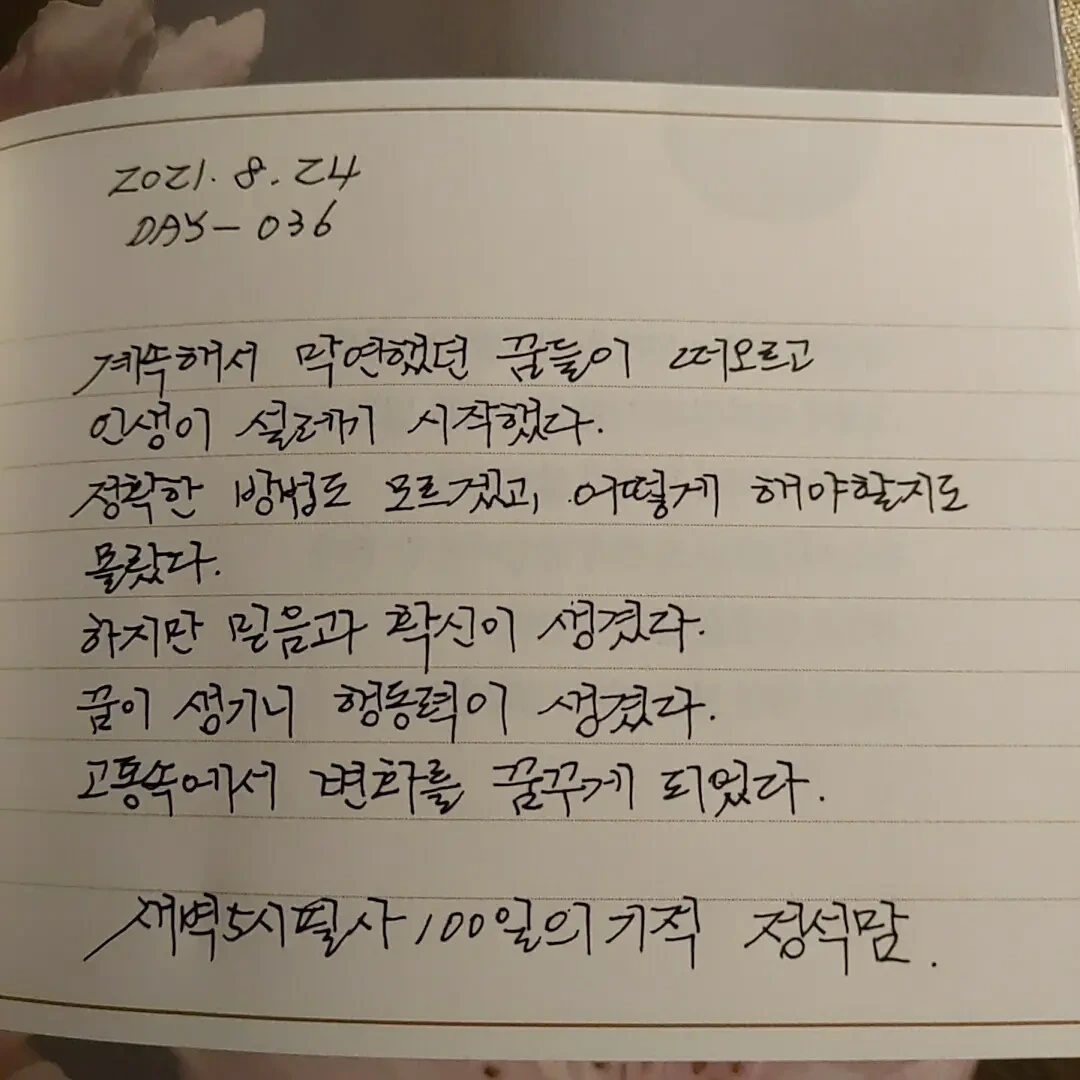 2021. 8. 24
DAY - 036
계속해서 막연했던 꿈들이 떠오르고
인생이 설레기 시작했다.
정확한 방법도 모르겠고, 어떻게 해야할지도
몰랐다.
하지만 믿음과 확신이 생겼다.
꿈이 생기니 행동력이 생겼다.
고통속에서 변화를 꿈꾸게 되었다.
새벽5시필사 100일의기적 정석맘.